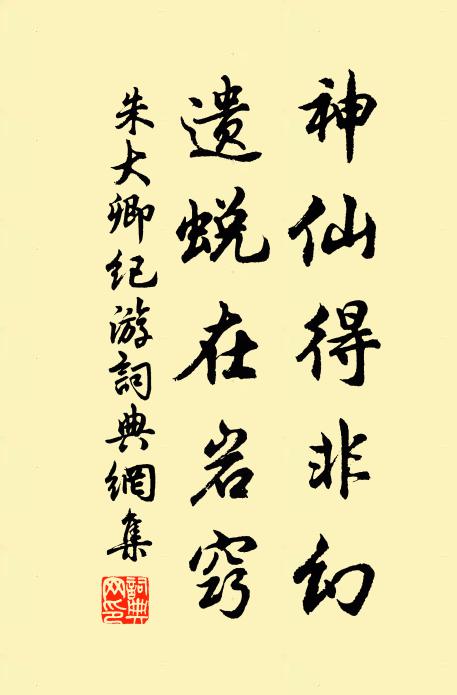 神仙得非幻
遗蜕在岩窍
朱大卿纪游詞典網集
詞典网印